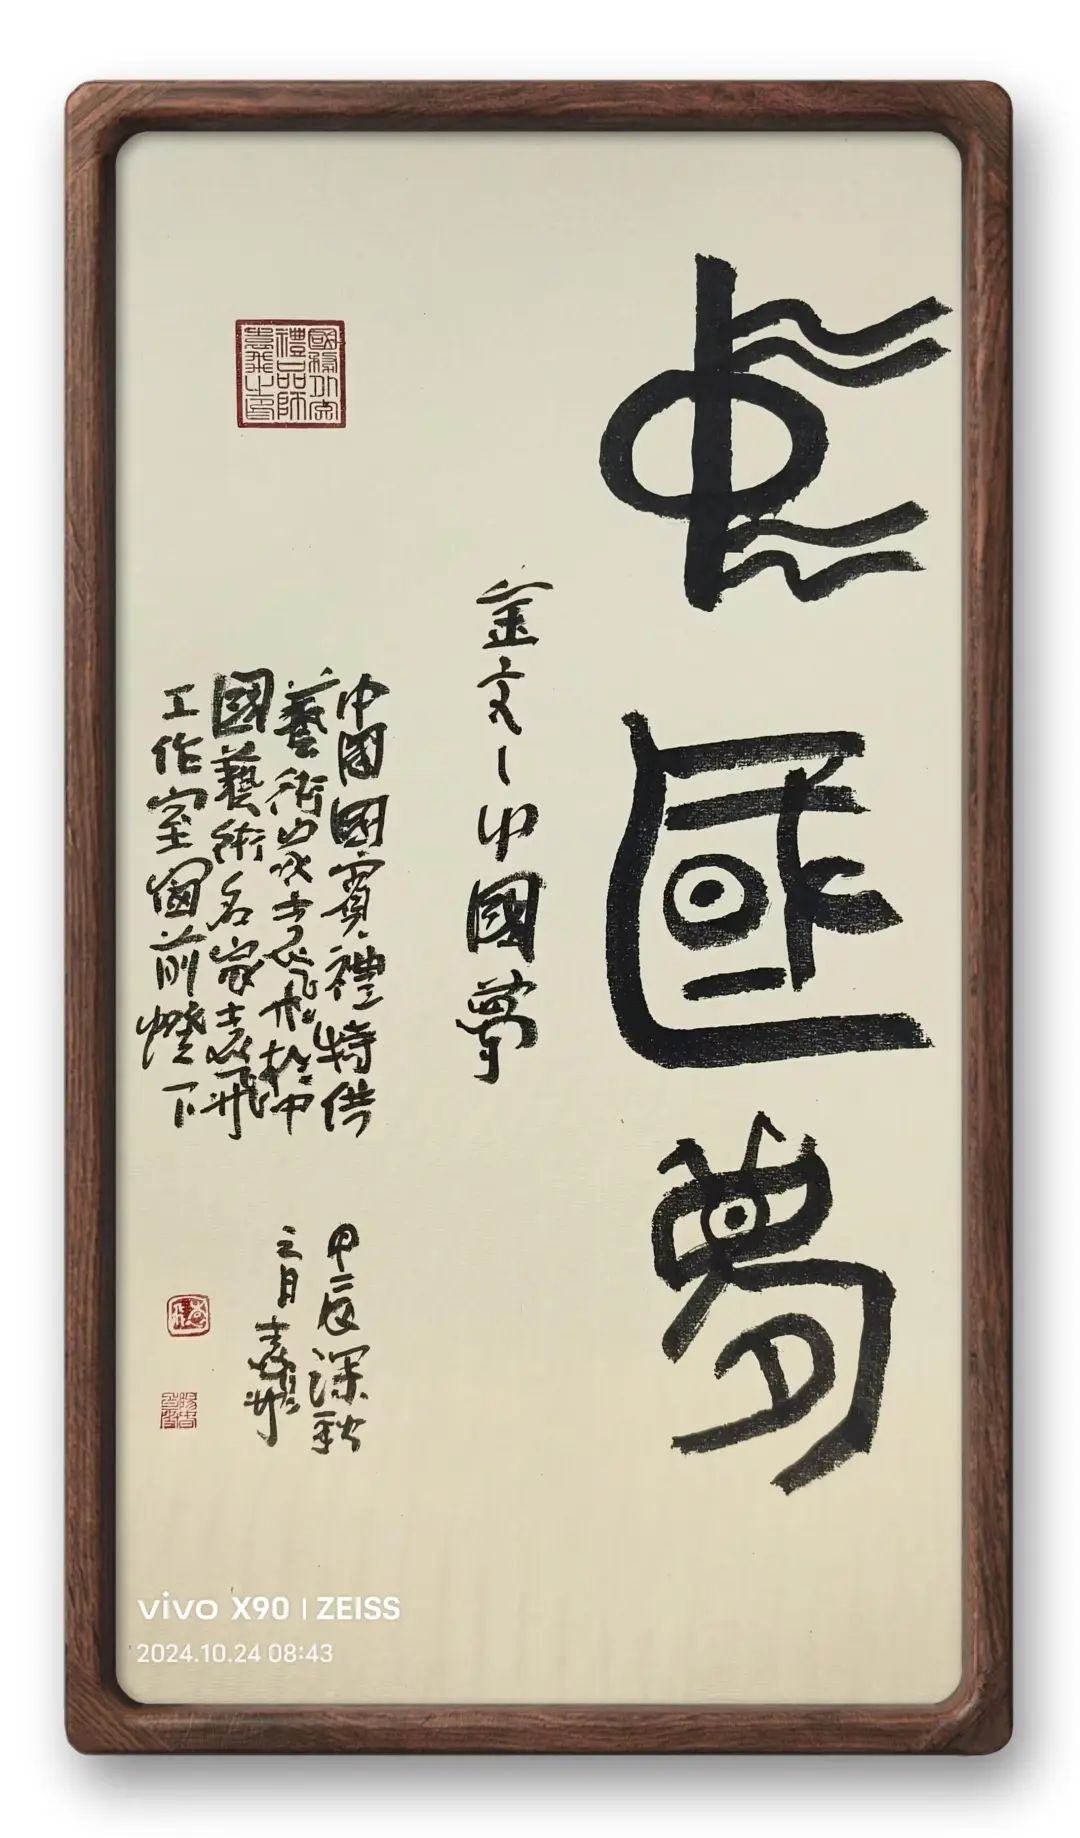 中國夢
金文一中國夢
中國國賓禮特供
藝術家袁飛於中
國藝術名家袁飛
工作室窗前燈下
甲辰深秋
之月袁飛
vivo X90 | ZEISS
2024.10.24 08:43